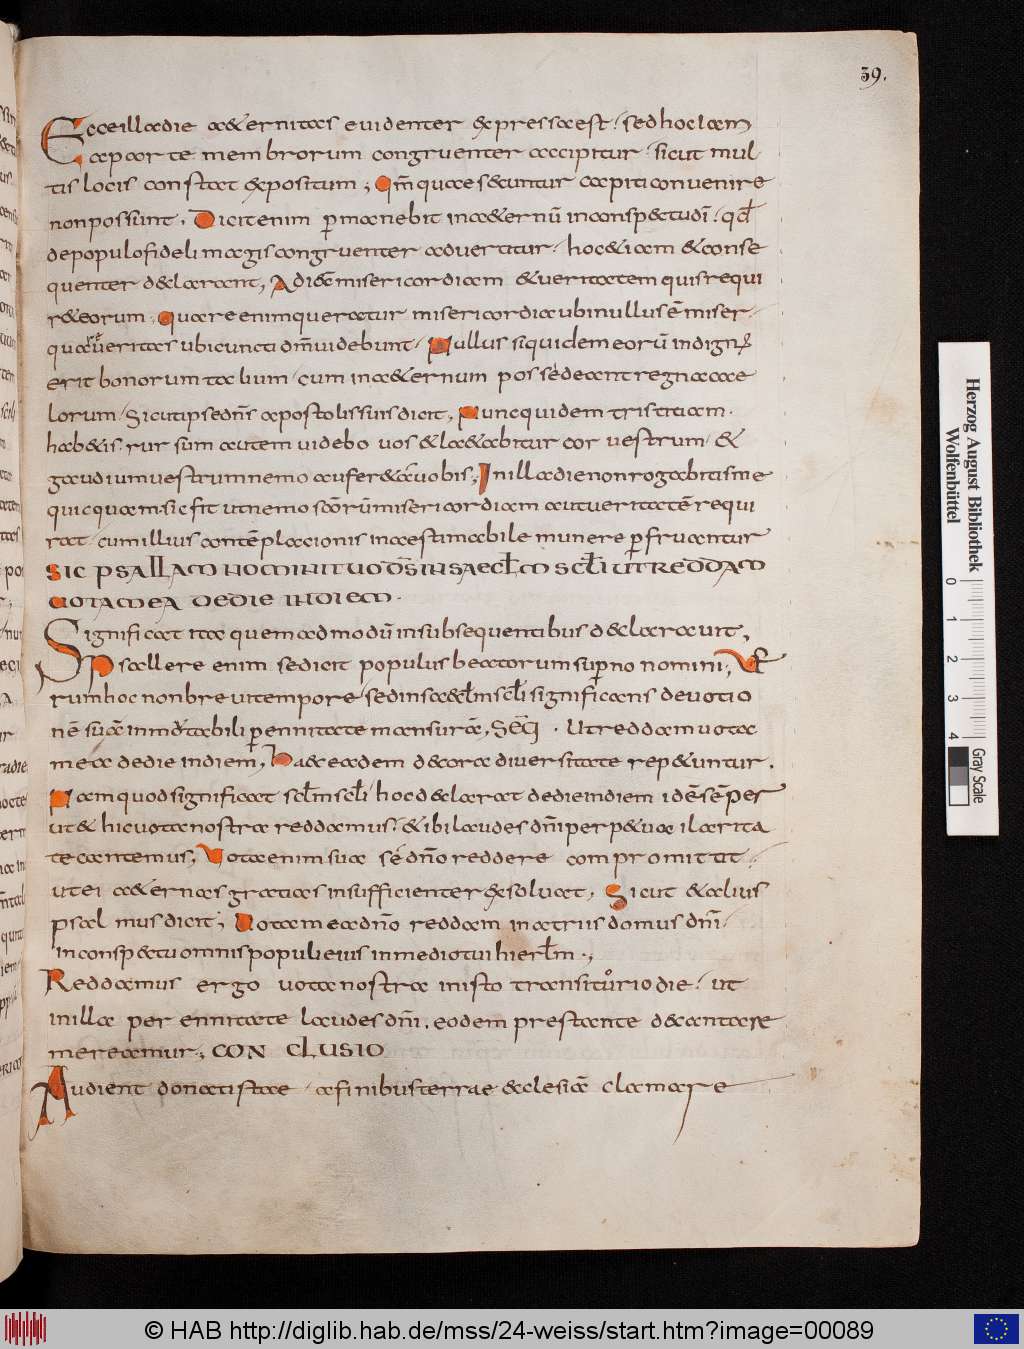 39.
Ecce illa die aeternitas evidenter expressa est. sed hoc iam
a parte membrorum congruenter accipitur. sicut mul
tis locis constat expositum; Qm̄ quae secuntur capiti convenire
non possunt. Dicit enim p̄manebit in aeternū in conspectu dī. qd̄
de populo fideli magis congruenter advertitur. hoc etiam et conse
quenter declarant, Adiēc misericordiam et veritatem quis requi
ret eorum. Quare enim queratur misericordia ubi nullus ē miser.
quare veritas ubi cuncti dm̄ videbunt. Nullus siquidem eorū indigus
erit bonorum talium. cum in aeternum possedeant regna cae
lorum. Sicut ipse dn̄s apostolis suis dicit, Nunc quidem tristitiam.
habetis. rursum autem videbo vos et laetabitur cor vestrum. et
gaudium vestrum nemo auferet a vobis; In illa die non rogabitis me
quicquam. sic fit ut nemo scōrū misericordiam aut veritatē requi
rat. cum illius contēplacionis inaestimabile munere p̄fruantur
SIC PSALLAM NOMINI TUO DS̄ IN SAECL̄M SCL̄I UT REDDAM
VOTA MEA DE DIE IN DIEM.
Significat ita quemadmodū in subsequentibus declaravit,
Psallere enim se dicit populus beatorum sup̄no nomini, Ve
rum hoc non brevi tempore. sed in saecl̄m scl̄i significans devotio
nē suā inmutabili p̄ennitate mansurā, SEQ̄. Ut reddam vota
mea de die in diem, Haec eadem decora diversitate repetuntur.
Nam quod significat scl̄m scl̄i. hoc declarat de die in diem id ē sēper
ut et hic vota nostra reddamus. et ibi laudes dn̄i perpetua ilarita
te cantemus, Vota enim sua sē dn̄o reddere compromittit.
ut ei aeternas gratias insufficienter exsolvat, Sicut et alius
psalmus dicit; Vota mea dn̄o reddam in atriis domus dn̄i.
in conspectu omnis populi eius in medio tui hierl̄m.,
Reddamus ergo vota nostra in isto transiturio die. ut
in illa perennitate laudes dn̄i. eodem prestante decantare
mereamur; CONCLUSIO
Audient donatistae. a finibus terrae eclesiā clamare
Herzog August Bibliothek
Wolfenbüttel
0 1 2 3 4
Gray Scale
© HAB http://diglib.hab.de/mss/24-weiss/start.htm?image=00089